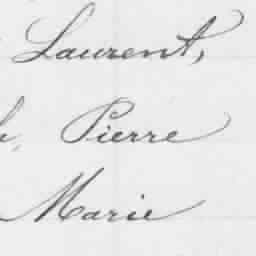 Laurent,
Pierre
Marie